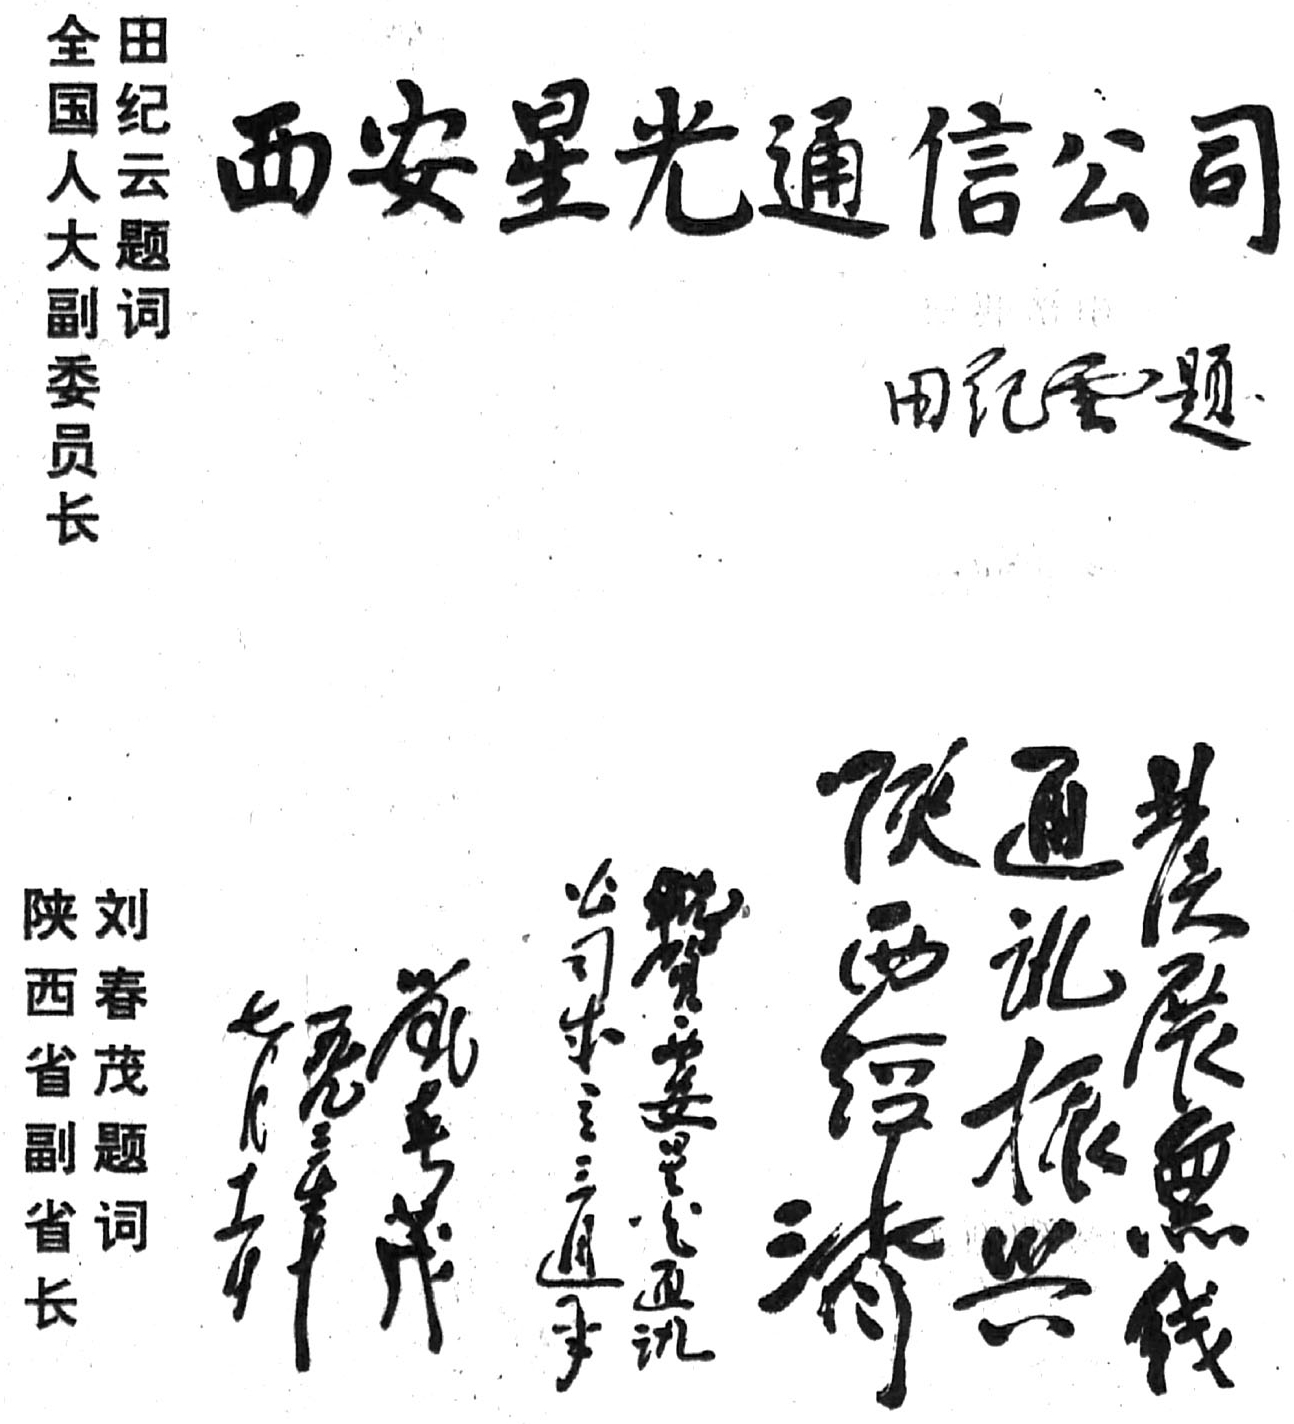 全国人大副委员长
田纪云题词
西安星光通信公司
田纪云题
陕西省副省长
刘春茂题词
发展无线
通讯振兴
陕西经济
祝贺西安星光通讯
公司成立三周年
刘春茂
一九九三年
七月十一日